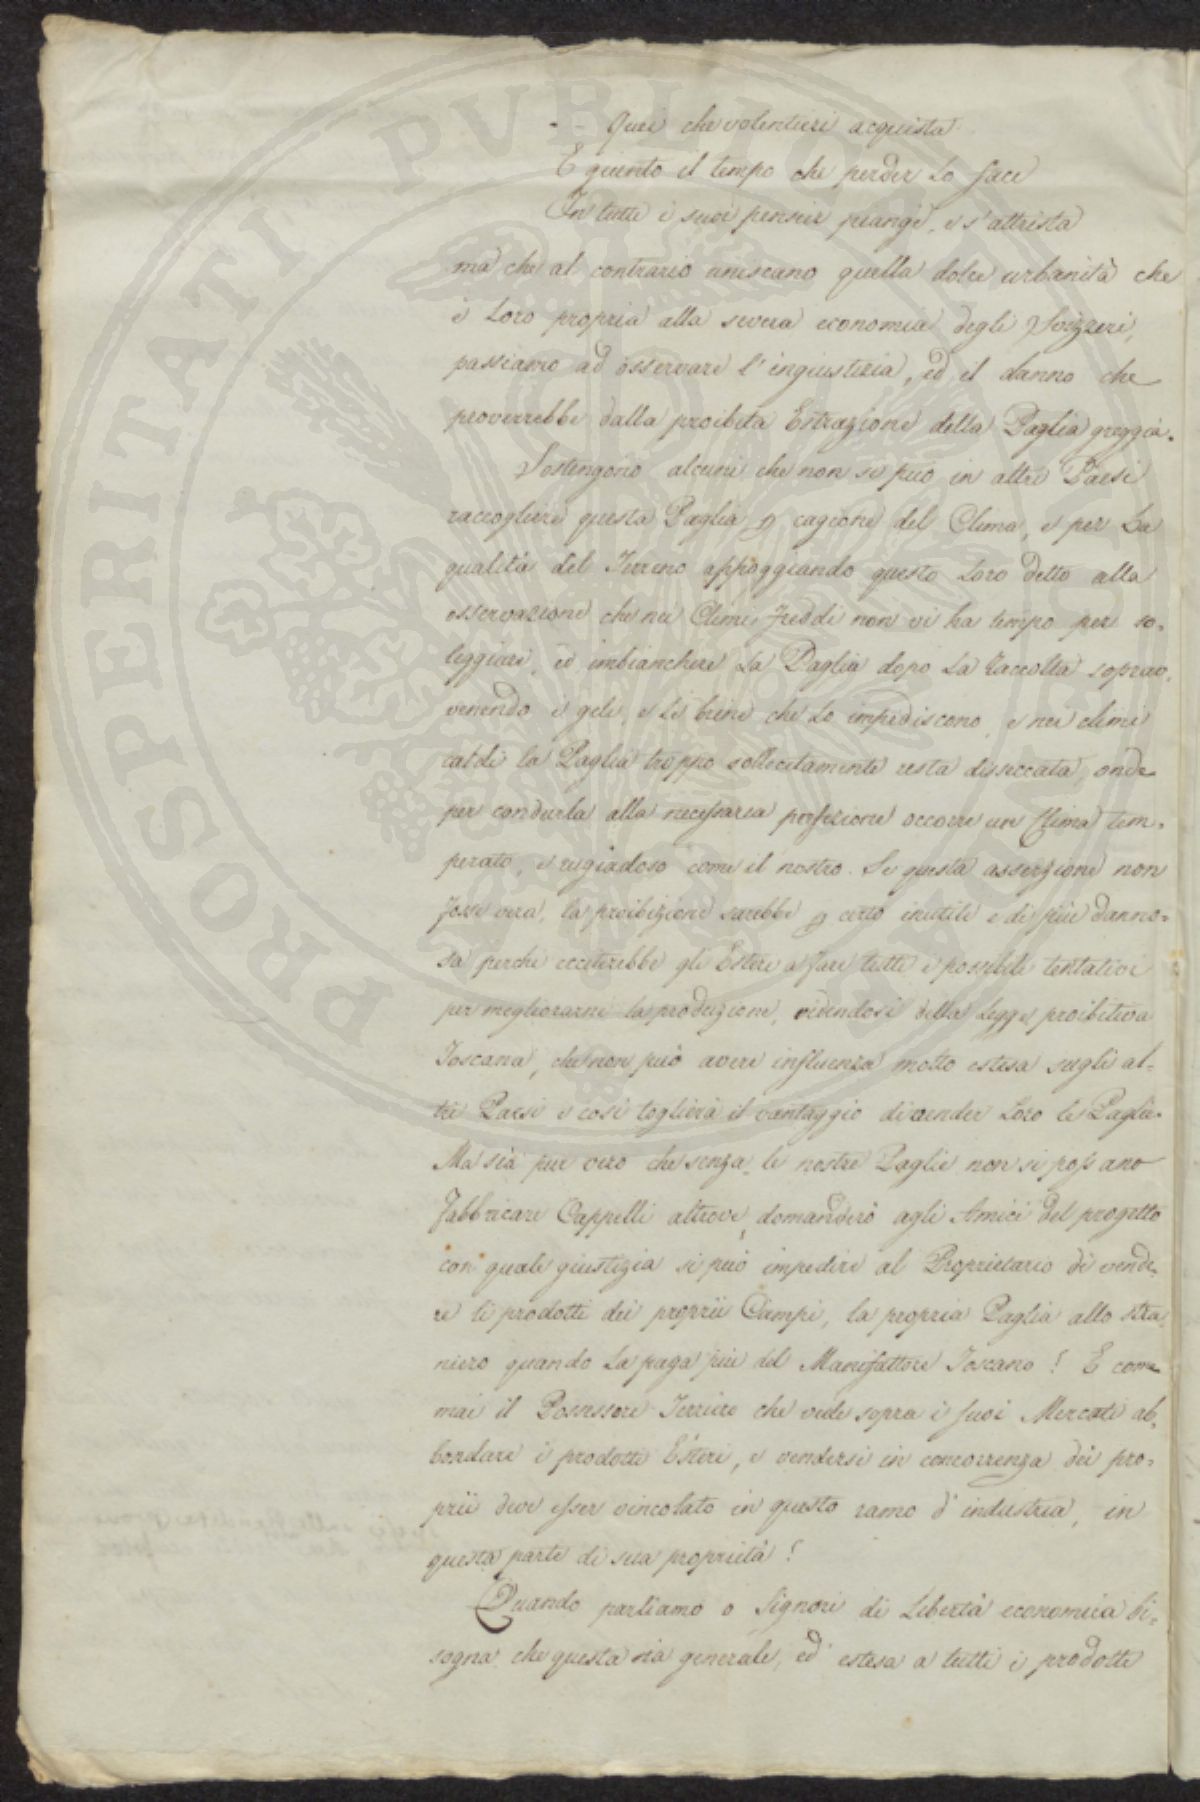 Quei che volentieri acquista
E giunto il tempo che perder lo face
In tutti i suoi pensier piange, e s'attrista
ma che al contrario uniscano quella dolce urbanità che
è loro propria alla severa economia degli Svizzeri,
passiamo ad osservare l'ingiustizia, ed il danno che
proverrebbe dalla proibita Estrazione della Paglia greggia.
Sostengono alcuni che non si può in altri Paesi
raccogliere questa Paglia p cagione del Clima, e per la
qualità del Terreno appoggiando questo loro detto alla
osservazione che nei Climi freddi non vi ha tempo per so-
leggiare, ed imbianchire la Paglia dopo la raccolta soprav-
venendo i geli, e le brine che lo impediscono, e nei climi
caldi la Paglia troppo sollecitamente resta disseccata, onde
per condurla alla necessaria perfezione occorre un Clima tem-
perato, e rugiadoso come il nostro. Se questa asserzione non
fosse vera, la proibizione sarebbe p certo inutile e di più danno-
sa perche ecciterebbe gli Esteri a fare tutti i possibili tentativi
per megliorarne la produzione, ridendosi della Legge proibitiva
Toscana, che non può avere influenza molto estesa sugli al-
tri Paesi e così toglierà il vantaggio di vender loro le Paglie.
Ma sia pur vero che senza le nostre Paglie non si possano
fabbricare Cappelli altrove, domanderò agli Amici del progetto
con quale giustizia si può impedire al Proprietario di vende-
re li prodotti dei proprii Campi, la propria Paglia allo stra-
niero quando la paga più del Manifattore Toscano! E come
mai il Possessore Terriere che vede sopra i suoi Mercati ab-
bondare i prodotti Esteri, e vendersi in concorrenza dei pro-
prii deve esser vincolato in questo ramo d'industria, in
questa parte di sua proprietà!
Quando parliamo o Signori di Libertà economica bi-
sogna che questa sia generale, ed estesa a tutti i prodotti
PROSPERITATI PVBLICAE AVGENDAE